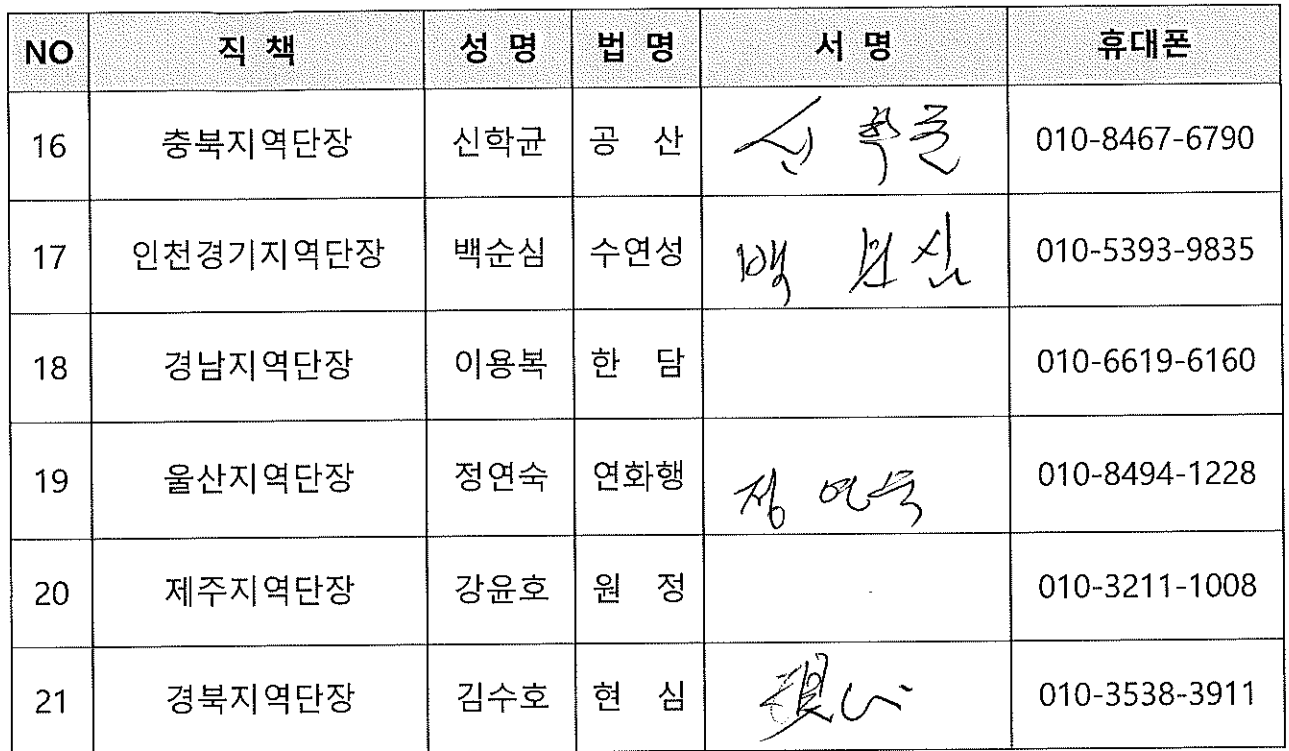 NO 직 책 성 명 법 명 서 명 휴대폰
16 충북지역단장 신학균 공 산 신 학균 010-8467-6790
17 인천경기지역단장 백순심 수연성 백 순심 010-5393-9835
18 경남지역단장 이용복 한 담 010-6619-6160
19 울산지역단장 정연숙 연화행 정 연숙 010-8494-1228
20 제주지역단장 강윤호 원 정 010-3211-1008
21 경북지역단장 김수호 현 심 010-3538-3911